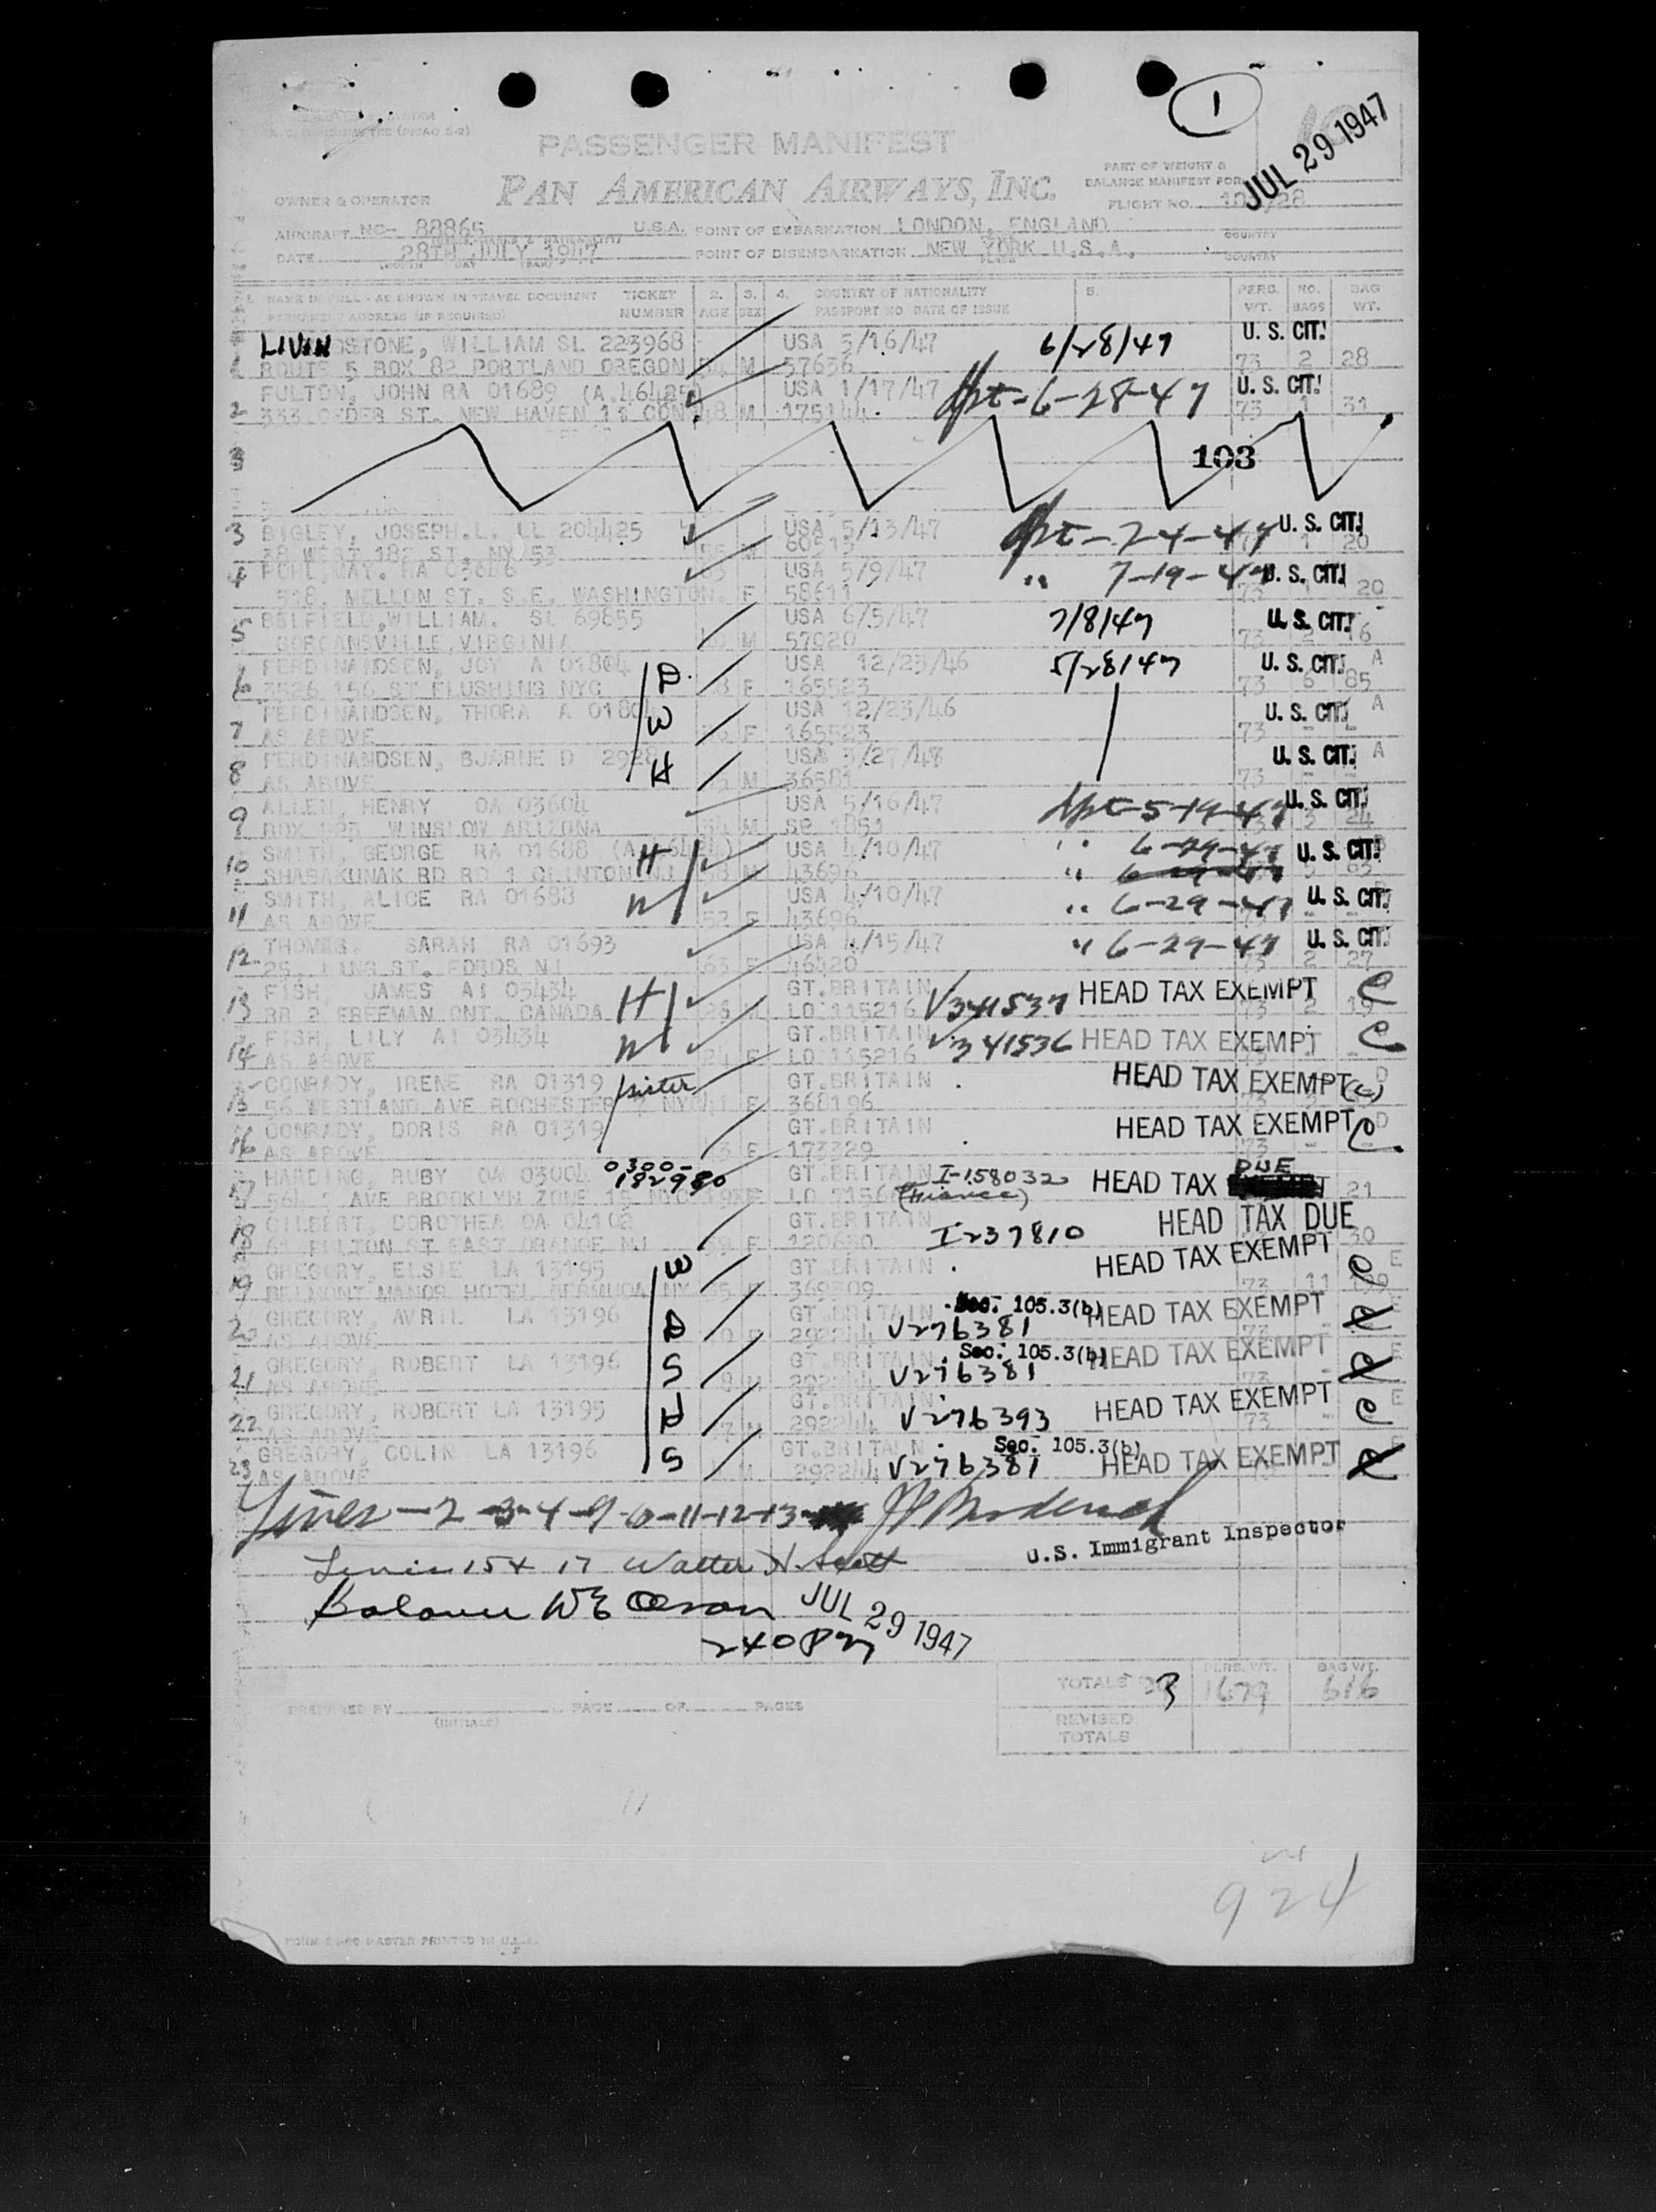 1
JUL 29 1947
PASSENGER MANIFEST
PAN AMERICAN AIRWAYS, INC.
PART OF WEIGHT &
BALANCE MANIFEST FOR
OWNER & OPERATOR
FLIGHT NO.
AIRCRAFT NC- 88865 U.S.A. POINT OF EMBARKATION LONDON, ENGLAND COUNTRY
DATE 28TH JULY 1947 POINT OF DISEMBARKATION NEW YORK U.S.A. COUNTRY
NAME IN FULL - AS SHOWN IN TRAVEL DOCUMENT TICKET 2. 3. 4. COUNTRY OF NATIONALITY 5. PERS. NO. BAG
PERMANENT ADDRESS (IF REQUIRED) NUMBER AGE SEX PASSPORT NO DATE OF ISSUE WT. BAGS WT.
LIVINGSTONE, WILLIAM SL 223968 USA 5/16/47 6/28/47 U. S. CIT.
ROUTE 5 BOX 82 PORTLAND OREGON M 57636 73 2 28
FULTON, JOHN RA 01689 USA 1/17/47 6-28-47 U. S. CIT.
2 333 CEDER ST. NEW HAVEN 11 CON 48 M 175144 73 1 31
103
3 BIGLEY, JOSEPH.L. LL 204425 USA 5/13/47 7-4-47 U. S. CIT.
38 WEST 182 ST. NY 53 M 60513 1 20
4 POHL, MAY. RA 03646 USA 5/9/47 " 7-19-47 U. S. CIT.
518, MELLON ST. S.E. WASHINGTON. F 58611 73 20
5 BELFIELD, WILLIAM. SL 69855 USA 6/5/47 7/8/47 U. S. CIT.
GORDANSVILLE, VIRGINIA M 57020 73 2 16
6 FERDINANDSEN, JOY A 01804 D USA 12/23/46 5/28/47 U. S. CIT. A
3526 156 ST FLUSHING NYC 8 F 165523 73 6 85
7 FERDINANDSEN, THORA A 01804 W USA 12/23/46 U. S. CIT. A
AS ABOVE F 165523 73 - -
8 FERDINANDSEN, BJARNE D 2928 H USA U. S. CIT. A
AS ABOVE M 36581 73 - -
9 ALLEN, HENRY OA 03604 USA 5/16/47 5-19-47 U. S. CIT.
BOX 523 WINSLOW ARIZONA M 73 3 24
10 SMITH, GEORGE RA 01688 H USA 4/10/47 " 6-29-47 U. S. CIT.
SHABAKUNAK RD RD 1 CLINTON NJ M 43696
11 SMITH, ALICE RA 01688 W USA 4/10/47 " 6-29-47 U. S. CIT.
AS ABOVE 52 F 43696
12 THOMAS. SARAH RA 01693 USA 4/15/47 " 6-29-47 U. S. CIT.
63 F 46920 73 2 27
13 FISH, JAMES AI 03434 H GT.BRITAIN V341537 HEAD TAX EXEMPT C
RR 2 FREEMAN ONT. CANADA 26 M LO 115216 73 2 19
14 FISH, LILY AI 03434 W GT.BRITAIN V341536 HEAD TAX EXEMPT C
AS ABOVE 24 F LO 115216
15 CONRADY, IRENE RA 01319 sister GT.BRITAIN HEAD TAX EXEMPT (C) D
56 WESTLAND AVE ROCHESTER NY F 368196
16 CONRADY, DORIS RA 01319 GT.BRITAIN HEAD TAX EXEMPT C D
AS ABOVE F 173329 73 - -
17 HARDING, RUBY OA 03004 0300-182980 GT.BRITAIN I-158032 HEAD TAX DUE
AVE BROOKLYN ZONE 15 NYC F LO (Fiancee) 21
18 GILBERT, DOROTHEA OA 04102 GT.BRITAIN I-237810 HEAD TAX DUE
FULTON ST EAST ORANGE NJ F 30
19 GREGORY, ELSIE LA 13195 W GT.BRITAIN HEAD TAX EXEMPT C E
BELMONT MANOR HOTEL BERMUDA F 369309 73 11 199
20 GREGORY, AVRIL LA 13196 D GT.BRITAIN Sec. 105.3(b) HEAD TAX EXEMPT E
AS ABOVE 292244 V276381 73
21 GREGORY, ROBERT LA 13196 S GT.BRITAIN Sec. 105.3(b) HEAD TAX EXEMPT E
AS ABOVE 8 M 292244 V276381 73 -
22 GREGORY, ROBERT LA 13195 H GT.BRITAIN V276393 HEAD TAX EXEMPT C E
AS ABOVE M 292244 73 -
23 GREGORY, COLIN LA 13196 S GT.BRITAIN Sec. 105.3(b) HEAD TAX EXEMPT
AS ABOVE M 292244 V276381
Lines - 2-3-4-9-10-11-12-13
U.S. Immigrant Inspector
Lines 15 + 17 Walter N. Scott
Balance
JUL 29 1947
240 PM
TOTALS 23 PERS. WT. 1679 BAG WT. 616
PREPARED BY (INITIALS) PAGE OF PAGES
REVISED
TOTALS
924